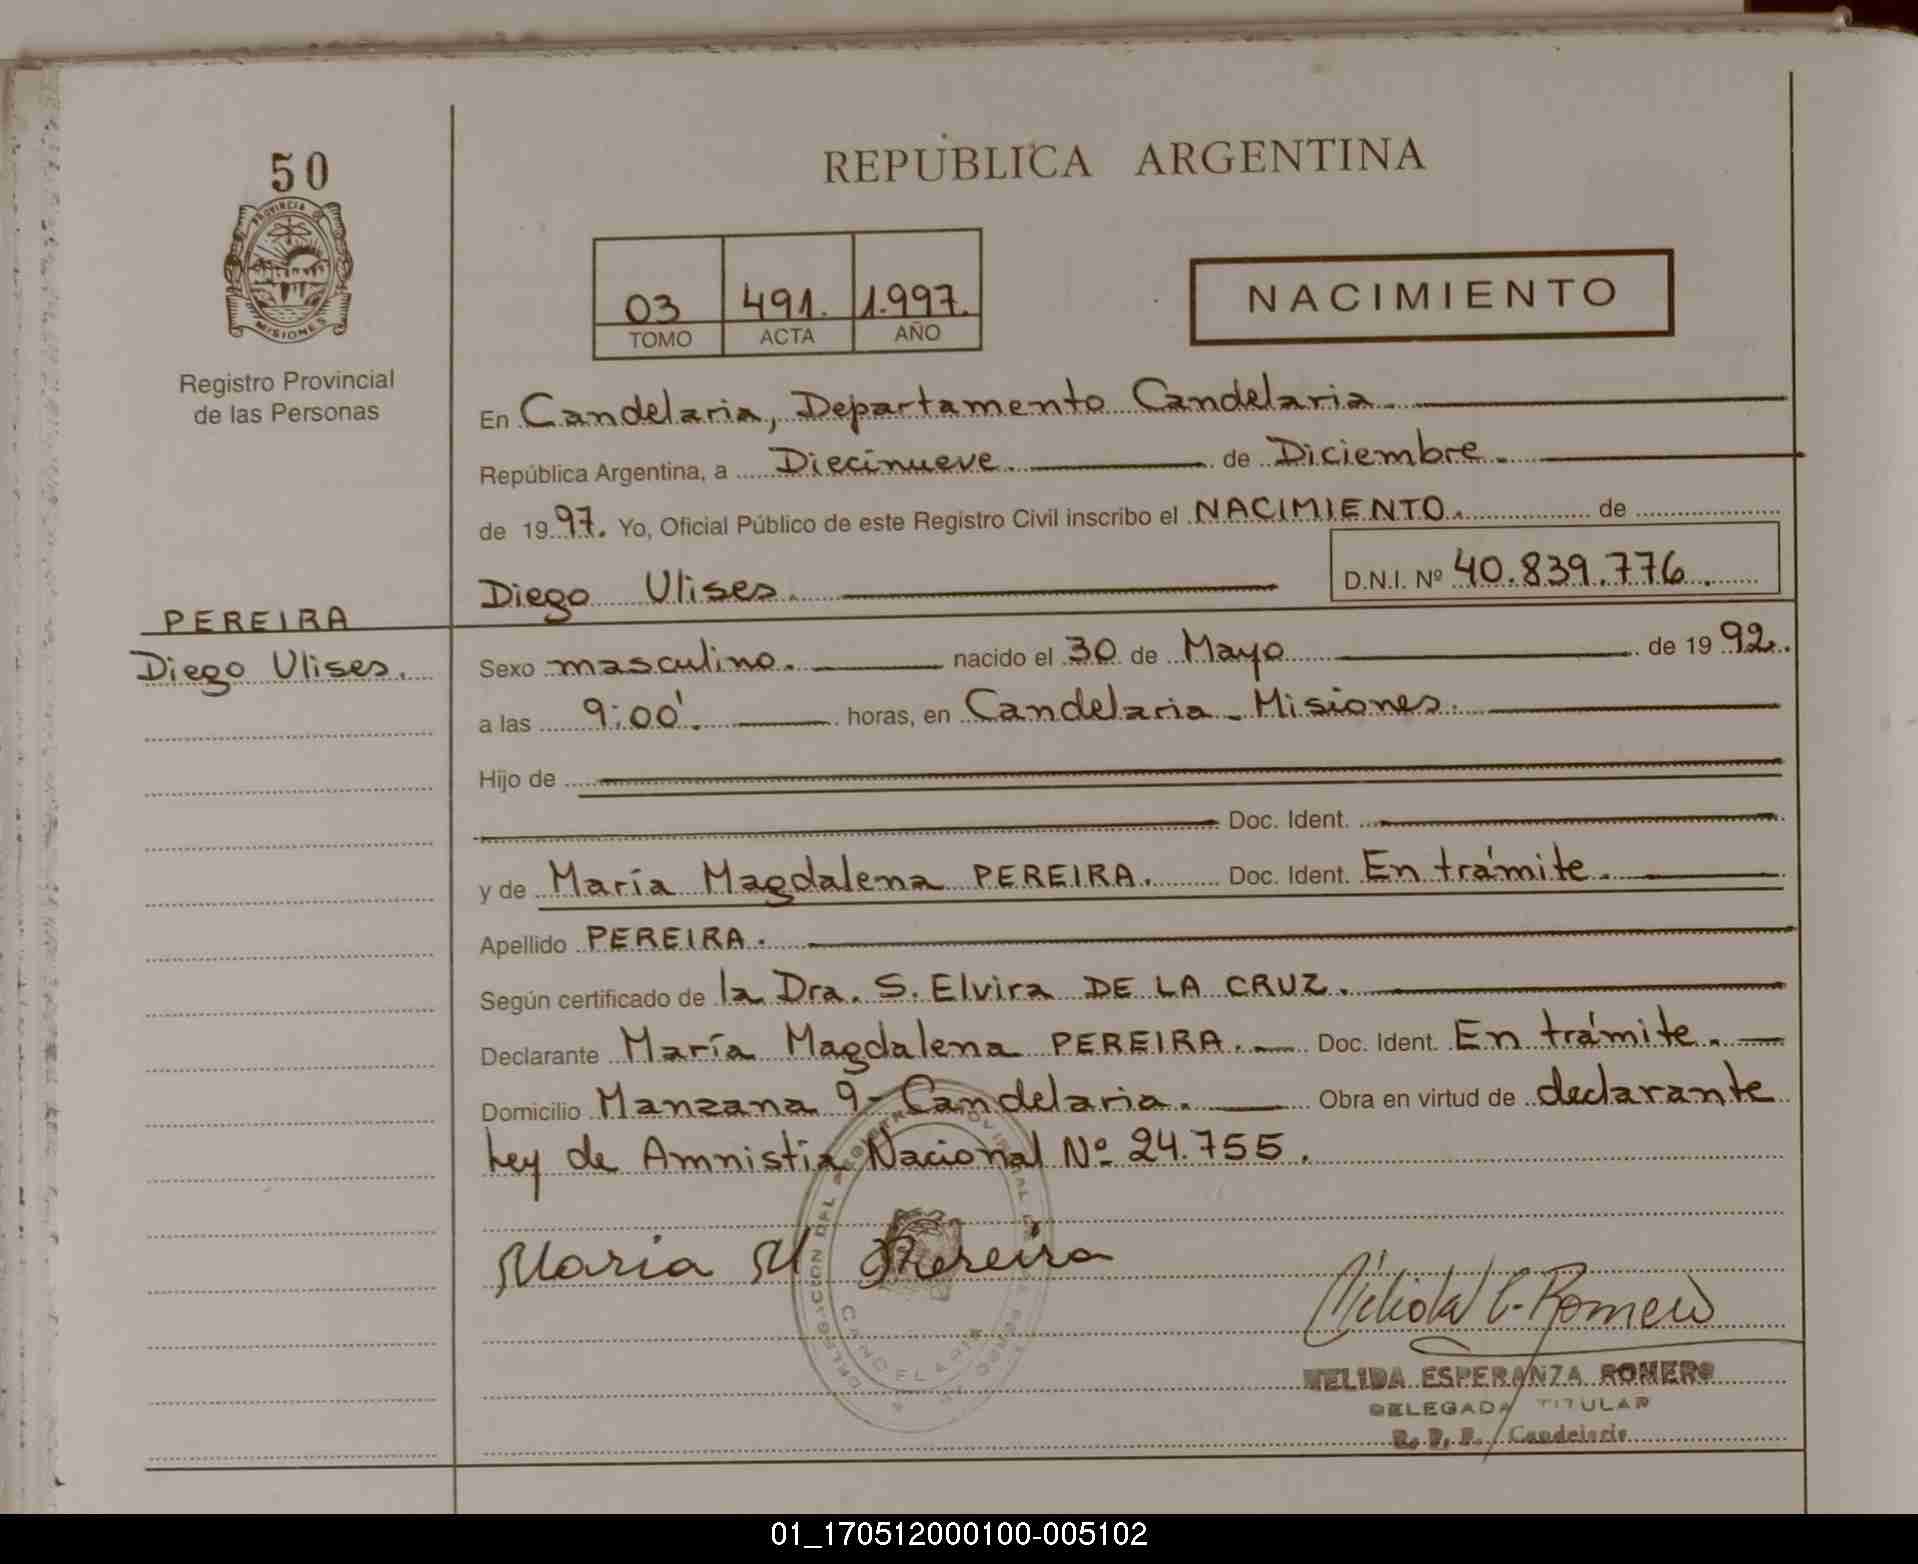 50
PROVINCIA DE
MISIONES
Registro Provincial
de las Personas
PEREIRA
Diego Ulises.
REPÚBLICA ARGENTINA
03 491. 1.997.
TOMO ACTA AÑO
NACIMIENTO
En Candelaria, Departamento Candelaria.
República Argentina, a Diecinueve. de Diciembre.
de 1997. Yo, Oficial Público de este Registro Civil inscribo el NACIMIENTO. de
Diego Ulises. D.N.I. Nº 40.839.776.
Sexo masculino. nacido el 30 de Mayo de 1992.
a las 9:00'. horas, en Candelaria - Misiones.
Hijo de
Doc. Ident.
y de María Magdalena PEREIRA. Doc. Ident. En trámite.
Apellido PEREIRA.
Según certificado de la Dra. S. Elvira DE LA CRUZ.
Declarante María Magdalena PEREIRA. Doc. Ident. En trámite.
Domicilio Manzana 9 - Candelaria. Obra en virtud de declarante
Ley de Amnistia Nacional Nº 24.755.
Maria M Pereira
DELEGACION DEL REGISTRO PROVINCIAL DE
CANDELARIA
NELIDA ESPERANZA ROMERO
DELEGADA TITULAR
R. P. P. Candelaria
01_170512000100-005102